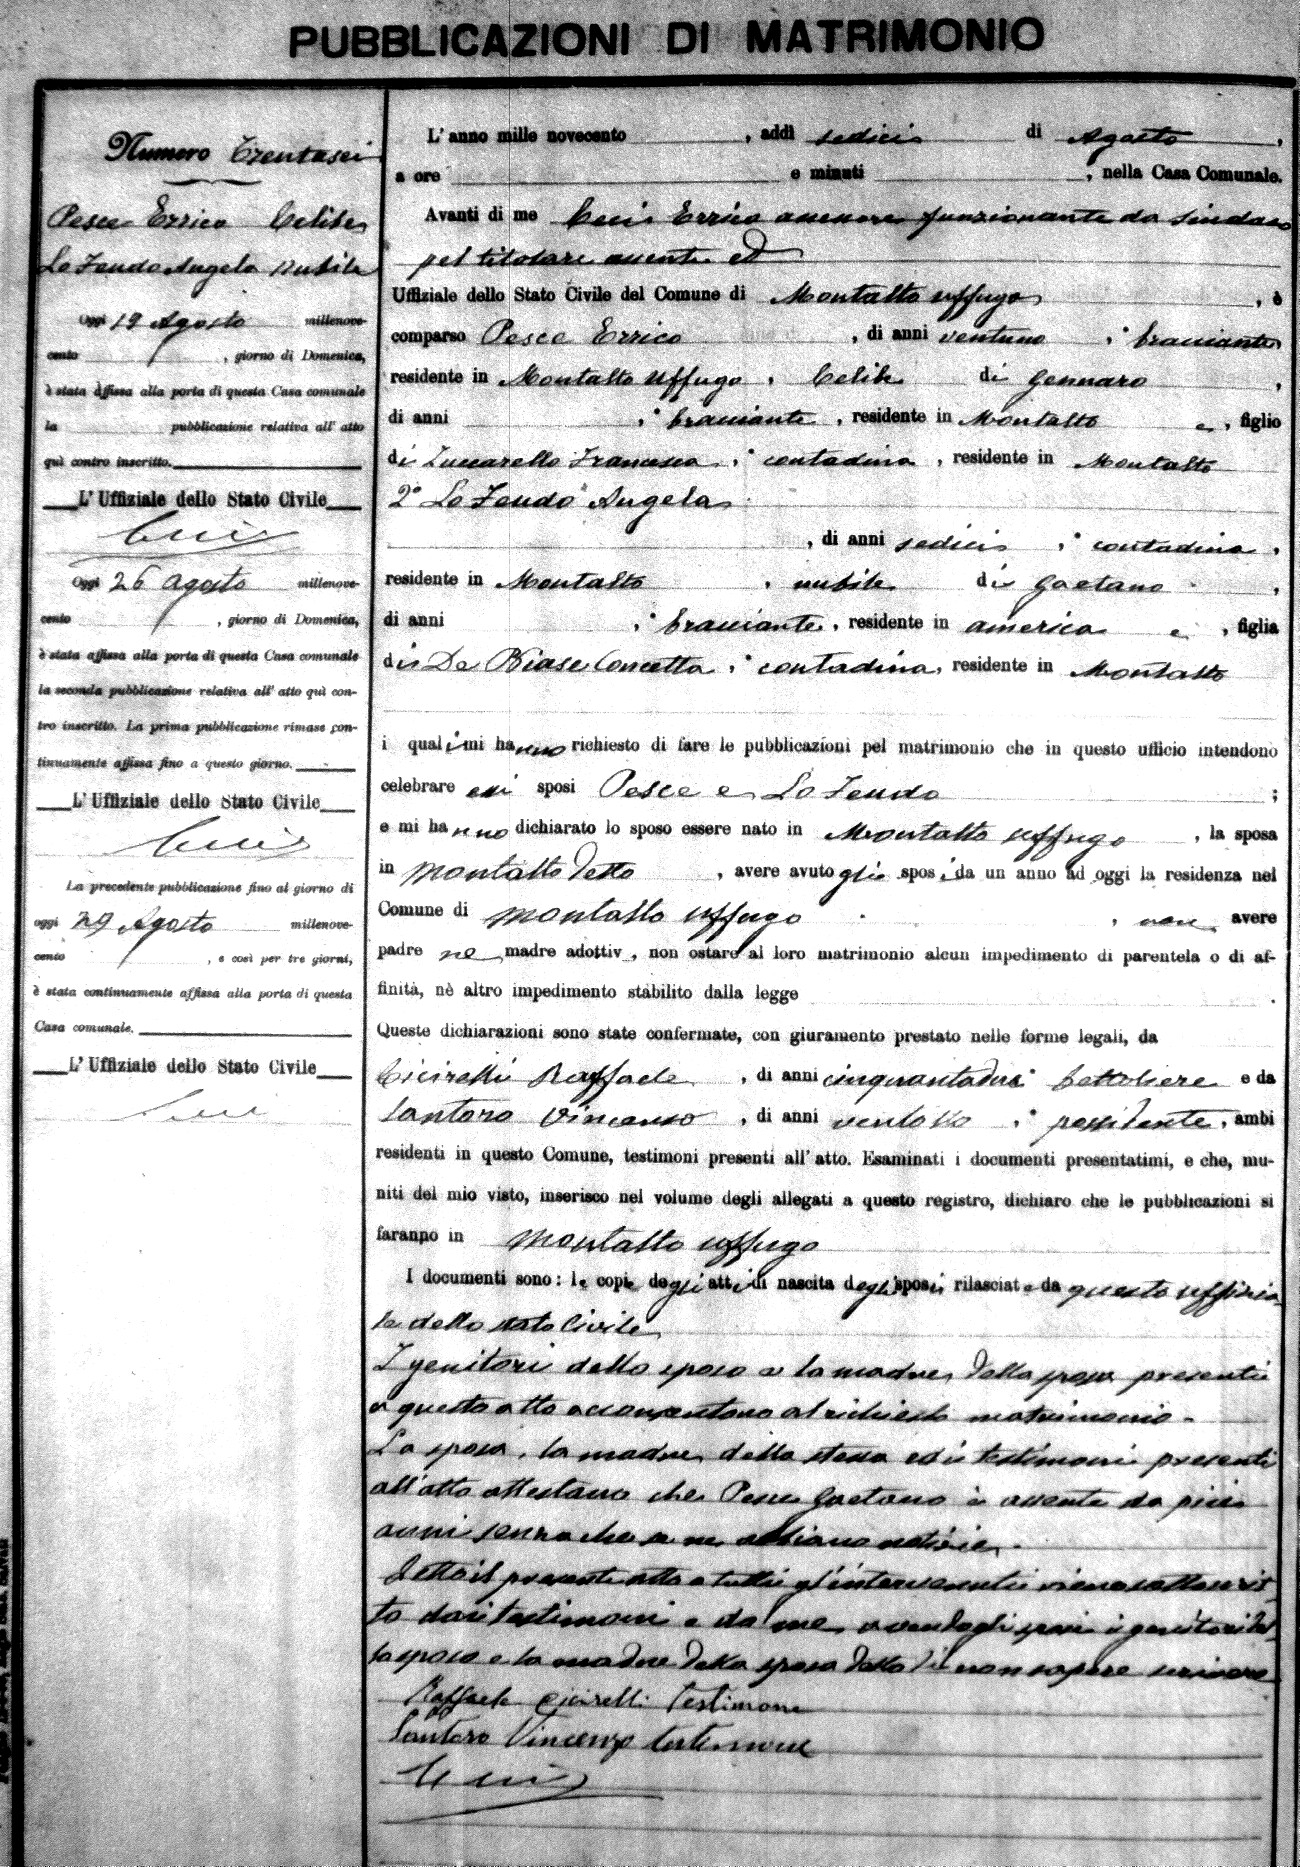 PUBBLICAZIONI DI MATRIMONIO
Numero Trentasei
Pesce Errico Celibe
Lo Feudo Angela nubile
Oggi 19 Agosto millenove-
cento , giorno di Domenica,
è stata affissa alla porta di questa Casa comunale
la pubblicazione relativa all' atto
quì contro inscritto.
L' Uffiziale dello Stato Civile
Oggi 26 Agosto millenove-
cento , giorno di Domenica,
è stata affissa alla porta di questa Casa comunale
la seconda pubblicazione relativa all' atto quì con-
tro inscritto. La prima pubblicazione rimase con-
tinuamente affissa fino a questo giorno.
L' Uffiziale dello Stato Civile
La precedente pubblicazione fino al giorno di
oggi 29 Agosto millenove-
cento , e così per tre giorni,
è stata continuamente affissa alla porta di questa
Casa comunale.
L' Uffiziale dello Stato Civile
L' anno mille novecento , addì sedici di Agosto ,
a ore e minuti , nella Casa Comunale.
Avanti di me Errico assessore funzionante da Sindaco
pel titolare assente ed
Uffiziale dello Stato Civile del Comune di Montalto Uffugo , è
comparso Pesce Errico , di anni ventuno , bracciante
residente in Montalto Uffugo , Celibe di Gennaro ,
di anni , bracciante , residente in Montalto e , figlio
di Zuccarello Francesca , contadina , residente in Montalto
2° Lo Feudo Angela
, di anni sedici , contadina ,
residente in Montalto , nubile di Gaetano ,
di anni , bracciante , residente in America e , figlia
di De Biase Concetta , contadina , residente in Montalto
i quali mi hanno richiesto di fare le pubblicazioni pel matrimonio che in questo ufficio intendono
celebrare essi sposi Pesce e Lo Feudo ;
e mi hanno dichiarato lo sposo essere nato in Montalto Uffugo , la sposa
in Montalto detto , avere avuto gli sposi da un anno ad oggi la residenza nel
Comune di Montalto Uffugo , non avere
padre ne madre adottiv , non ostare al loro matrimonio alcun impedimento di parentela o di af-
finità, nè altro impedimento stabilito dalla legge .
Queste dichiarazioni sono state confermate, con giuramento prestato nelle forme legali, da
Cicirelli Raffaele , di anni cinquantadue bettoliere e da
Santoro Vincenzo , di anni ventotto , possidente , ambi
residenti in questo Comune, testimoni presenti all' atto. Esaminati i documenti presentatimi, e che, mu-
niti del mio visto, inserisco nel volume degli allegati a questo registro, dichiaro che le pubblicazioni si
faranno in Montalto Uffugo
I documenti sono: le copie degli atti di nascita degli sposi rilasciate da questo uffizia
le dello stato Civile
I genitori dello sposo e la madre della sposa presenti
a questo atto acconsentono al richiesto matrimonio.
La sposa, la madre della stessa ed i testimoni presenti
all'atto attestano che Pesce Gaetano è assente da più
anni senza che se ne abbiano notizie.
Letto il presente atto a tutti gl'intervenuti viene sottoscrit-
to dai testimoni e da me avendo gli sposi i genitori del-
lo sposo e la madre della sposa detto di non sapere scrivere
Raffaele Cicirelli testimone
Santoro Vincenzo testimone